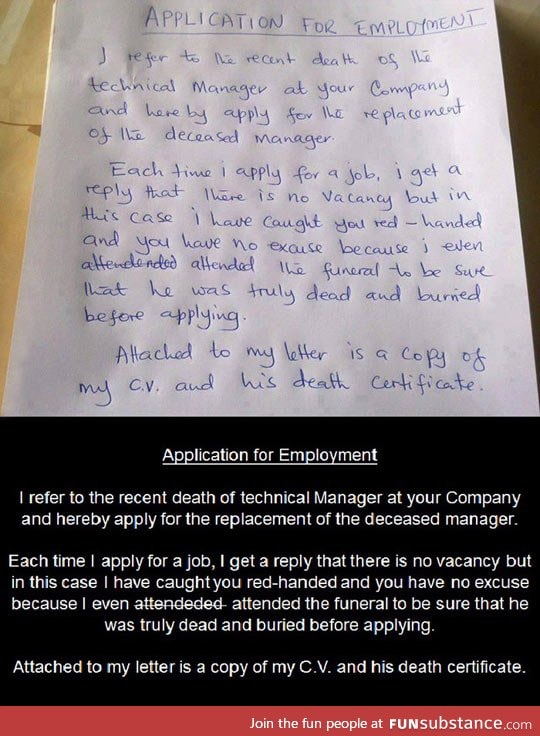 APPLICATION FOR EMPLOYMENT
I refer to the recent death of the
technical Manager at your Company
and hereby apply for the replacement
of the deceased manager.
Each time i apply for a job, i get a
reply that there is no Vacancy but in
this case i have caught you red-handed
and you have no excuse because i even
attendended attended the funeral to be sure
that he was truly dead and burried
before applying.
Attached to my letter is a copy of
my C.V. and his death certificate.
Application for Employment
I refer to the recent death of technical Manager at your Company
and hereby apply for the replacement of the deceased manager.
Each time I apply for a job, I get a reply that there is no vacancy but
in this case I have caught you red-handed and you have no excuse
because I even attendeded attended the funeral to be sure that he
was truly dead and buried before applying.
Attached to my letter is a copy of my C.V. and his death certificate.
Join the fun people at FUNsubstance.com